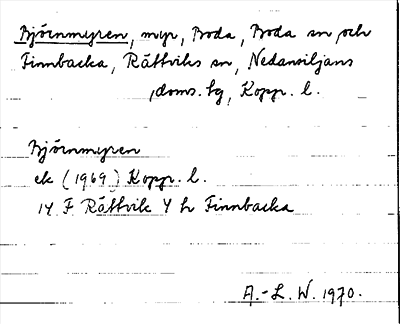 Björnmyren, myr, Boda, Boda sn och
Finnbacka, Rättviks sn, Nedansiljans
doms. tg, Kopp. l.
Björnmyren
ek (1969) Kopp. l.
14 F Rättvik 4 h Finnbacka
A.-L. W. 1970.